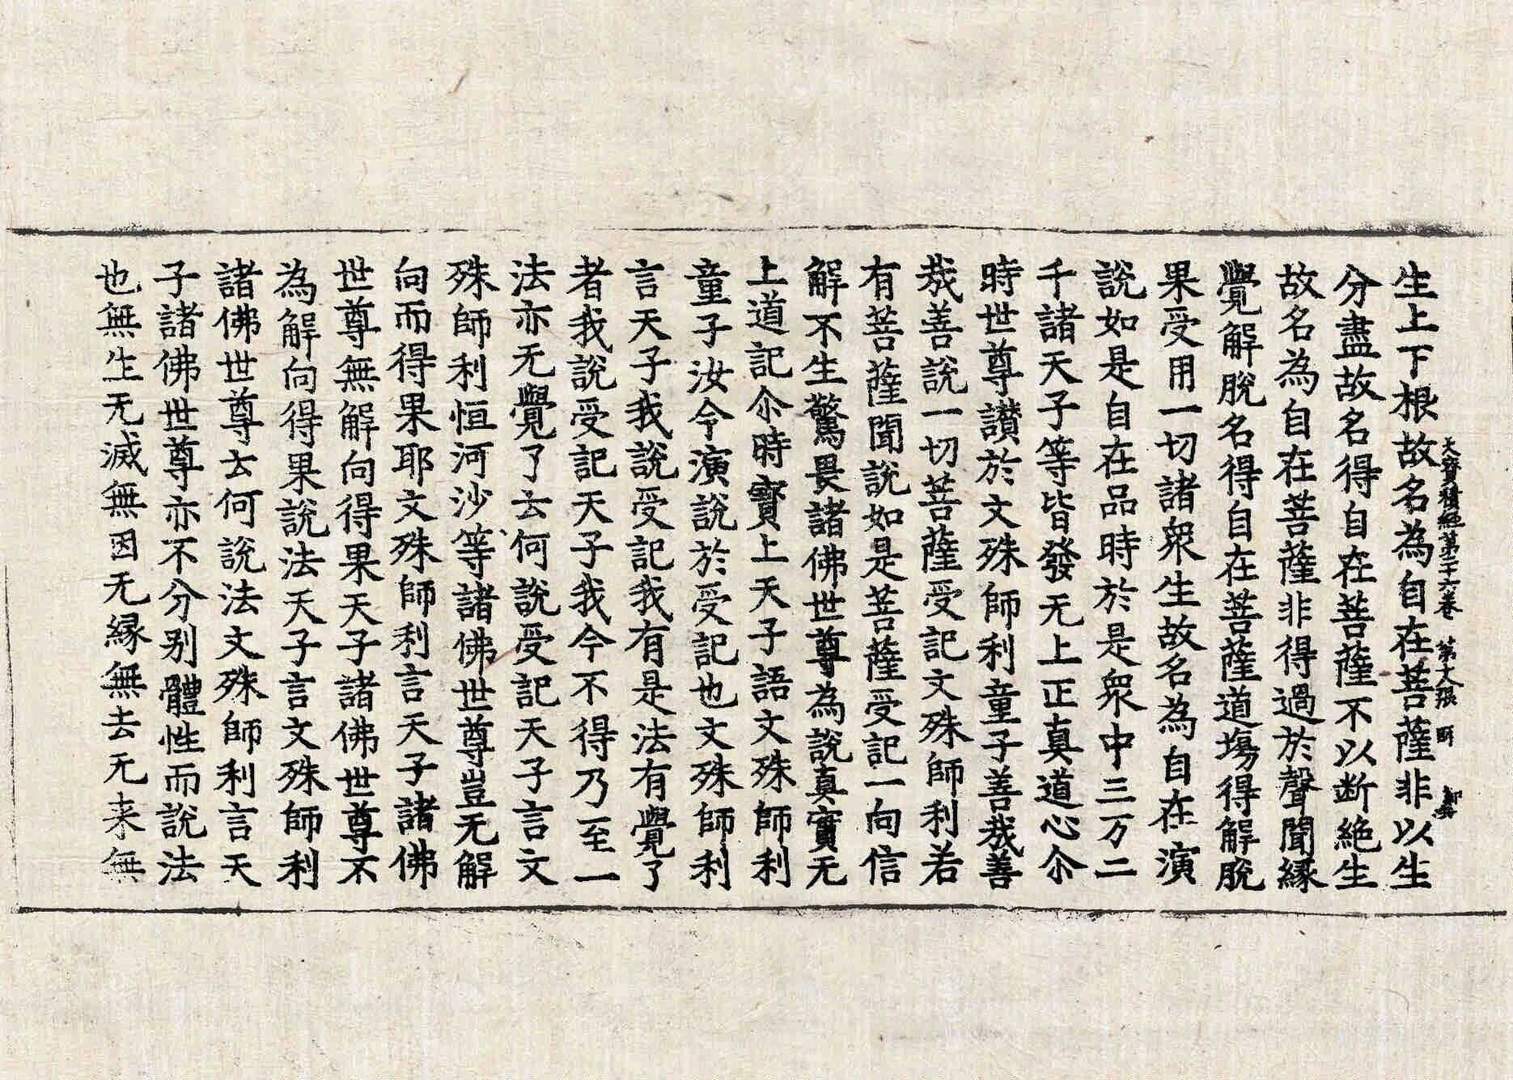 大寶積經第二十六卷 第 張
生上下根故名為自在菩薩非以生
分盡故名得自在菩薩不以断絶生
故名為自在菩薩非得過於聲聞縁
覺解脫名得自在菩薩道場得解脫
果受用一切諸衆生故名為自在演
說如是自在品時於是衆中三万二
千諸天子等皆發无上正真道心尒
時世尊讃於文殊師利童子善哉善
哉善說一切菩薩受記文殊師利若
有菩薩聞說如是菩薩受記一向信
解不生驚畏諸佛世尊為說真實无
上道記尒時寳上天子語文殊師利
童子汝今演說於受記也文殊師利
言天子我說受記我有是法有覺了
者我說受記天子我今不得乃至一
法亦无覺了去何說受記天子言文
殊師利恒河沙等諸佛世尊豈无解
向而得果耶文殊師利言天子諸佛
世尊無解向得果天子諸佛世尊不
為解向得果說法天子言文殊師利
諸佛世尊去何說法文殊師利言天
子諸佛世尊亦不分别體性而說法
也無生无滅無因无縁無去无来無